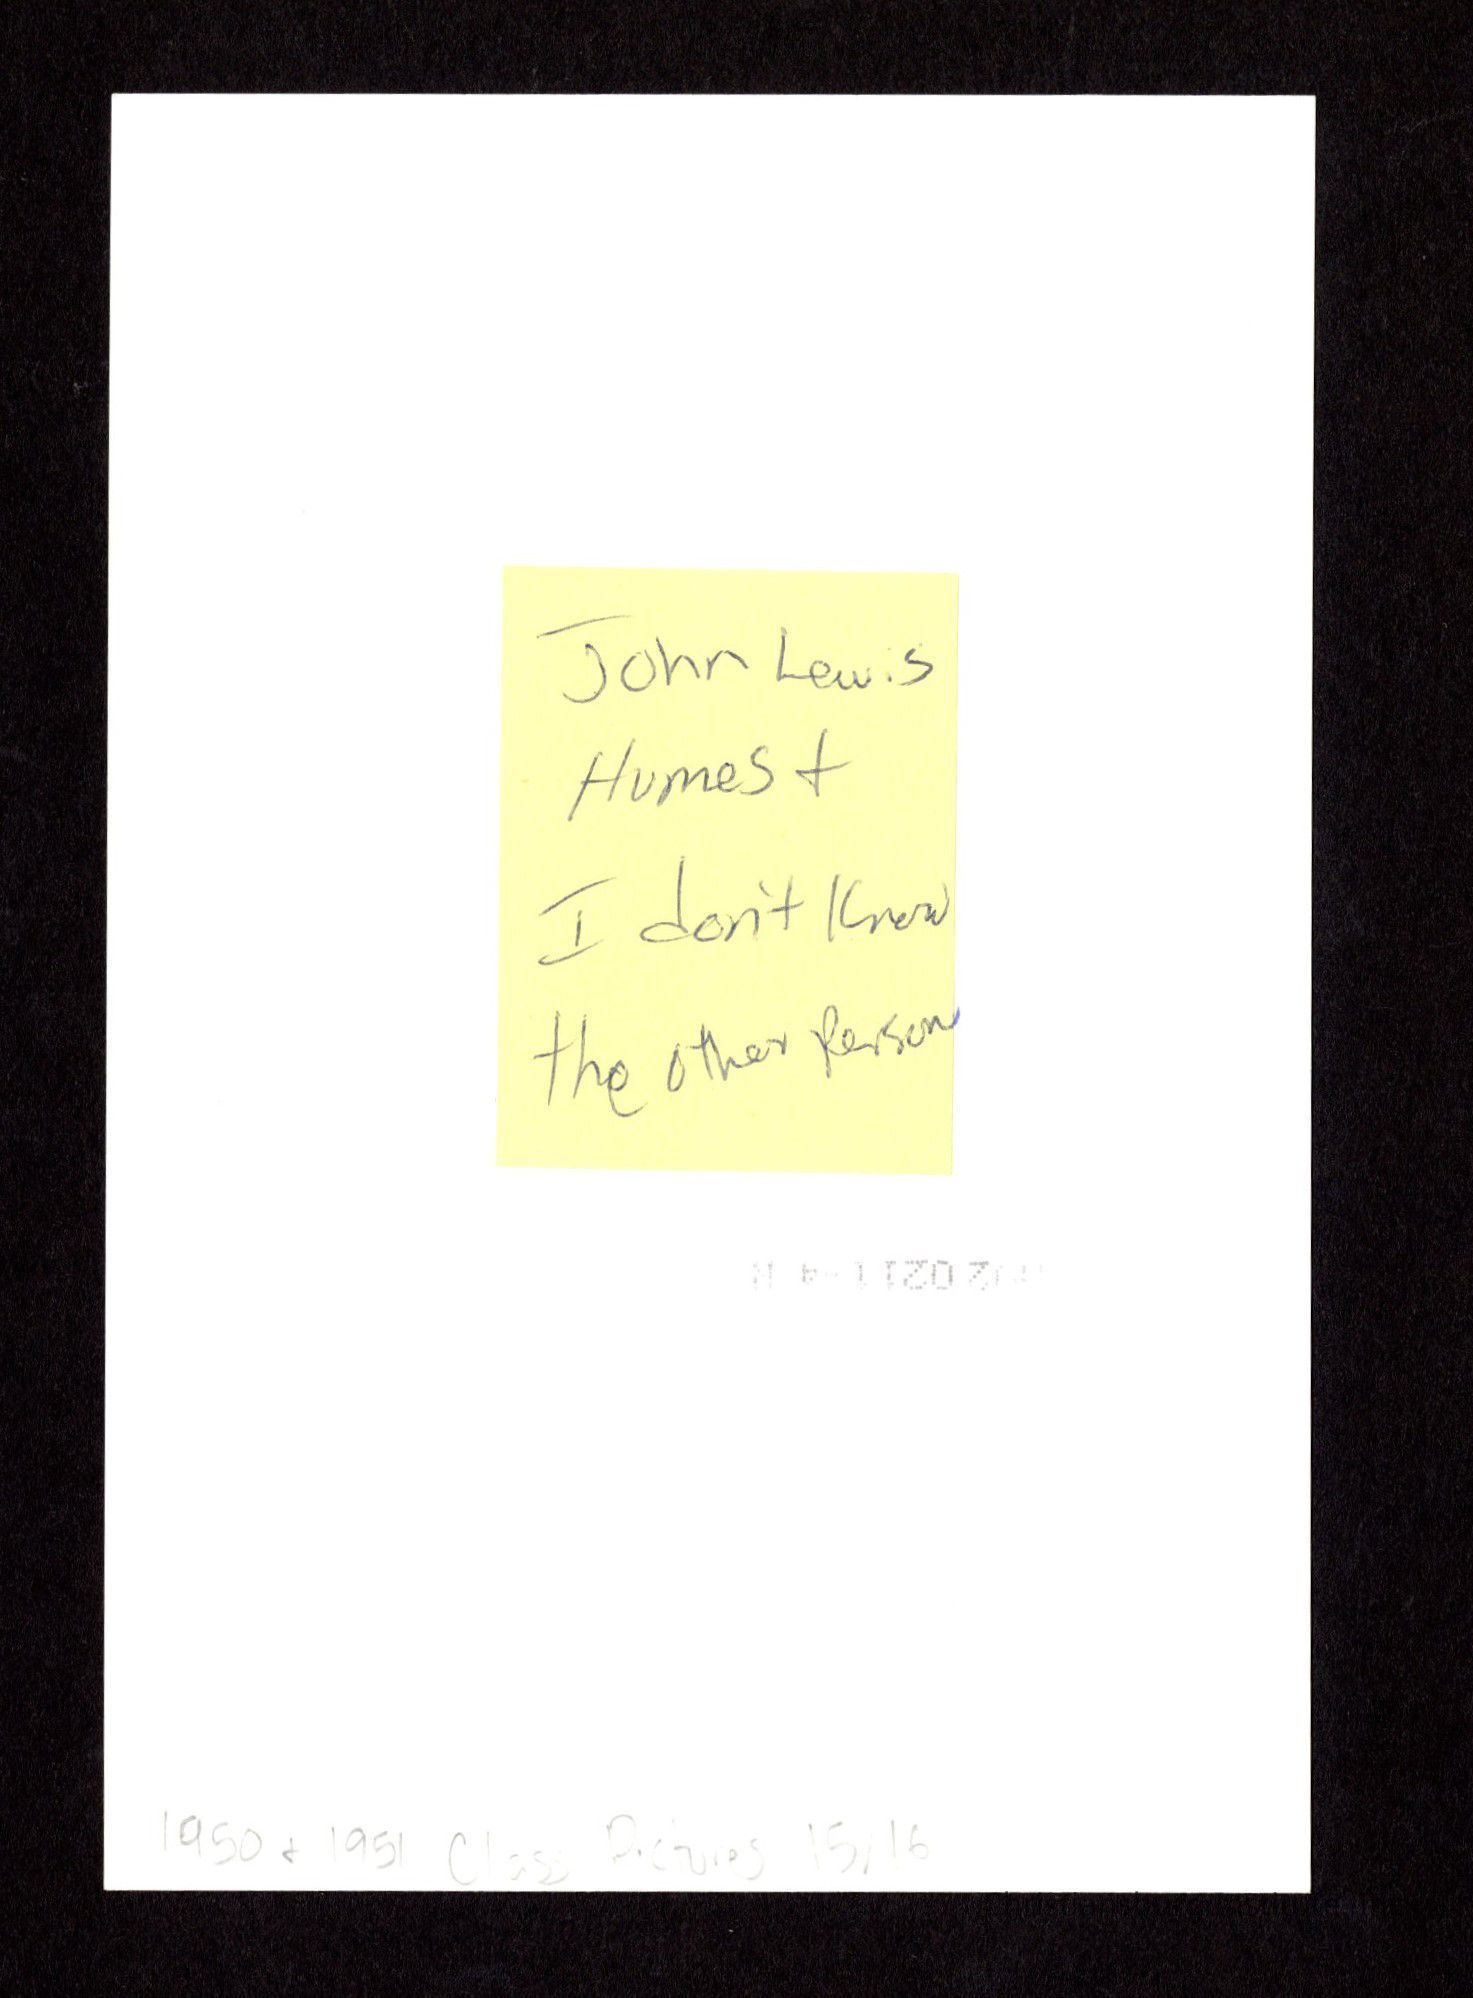 John Lewis
Humes +
I don't Know
the other person
1950 + 1951 Class Pictures 15/16